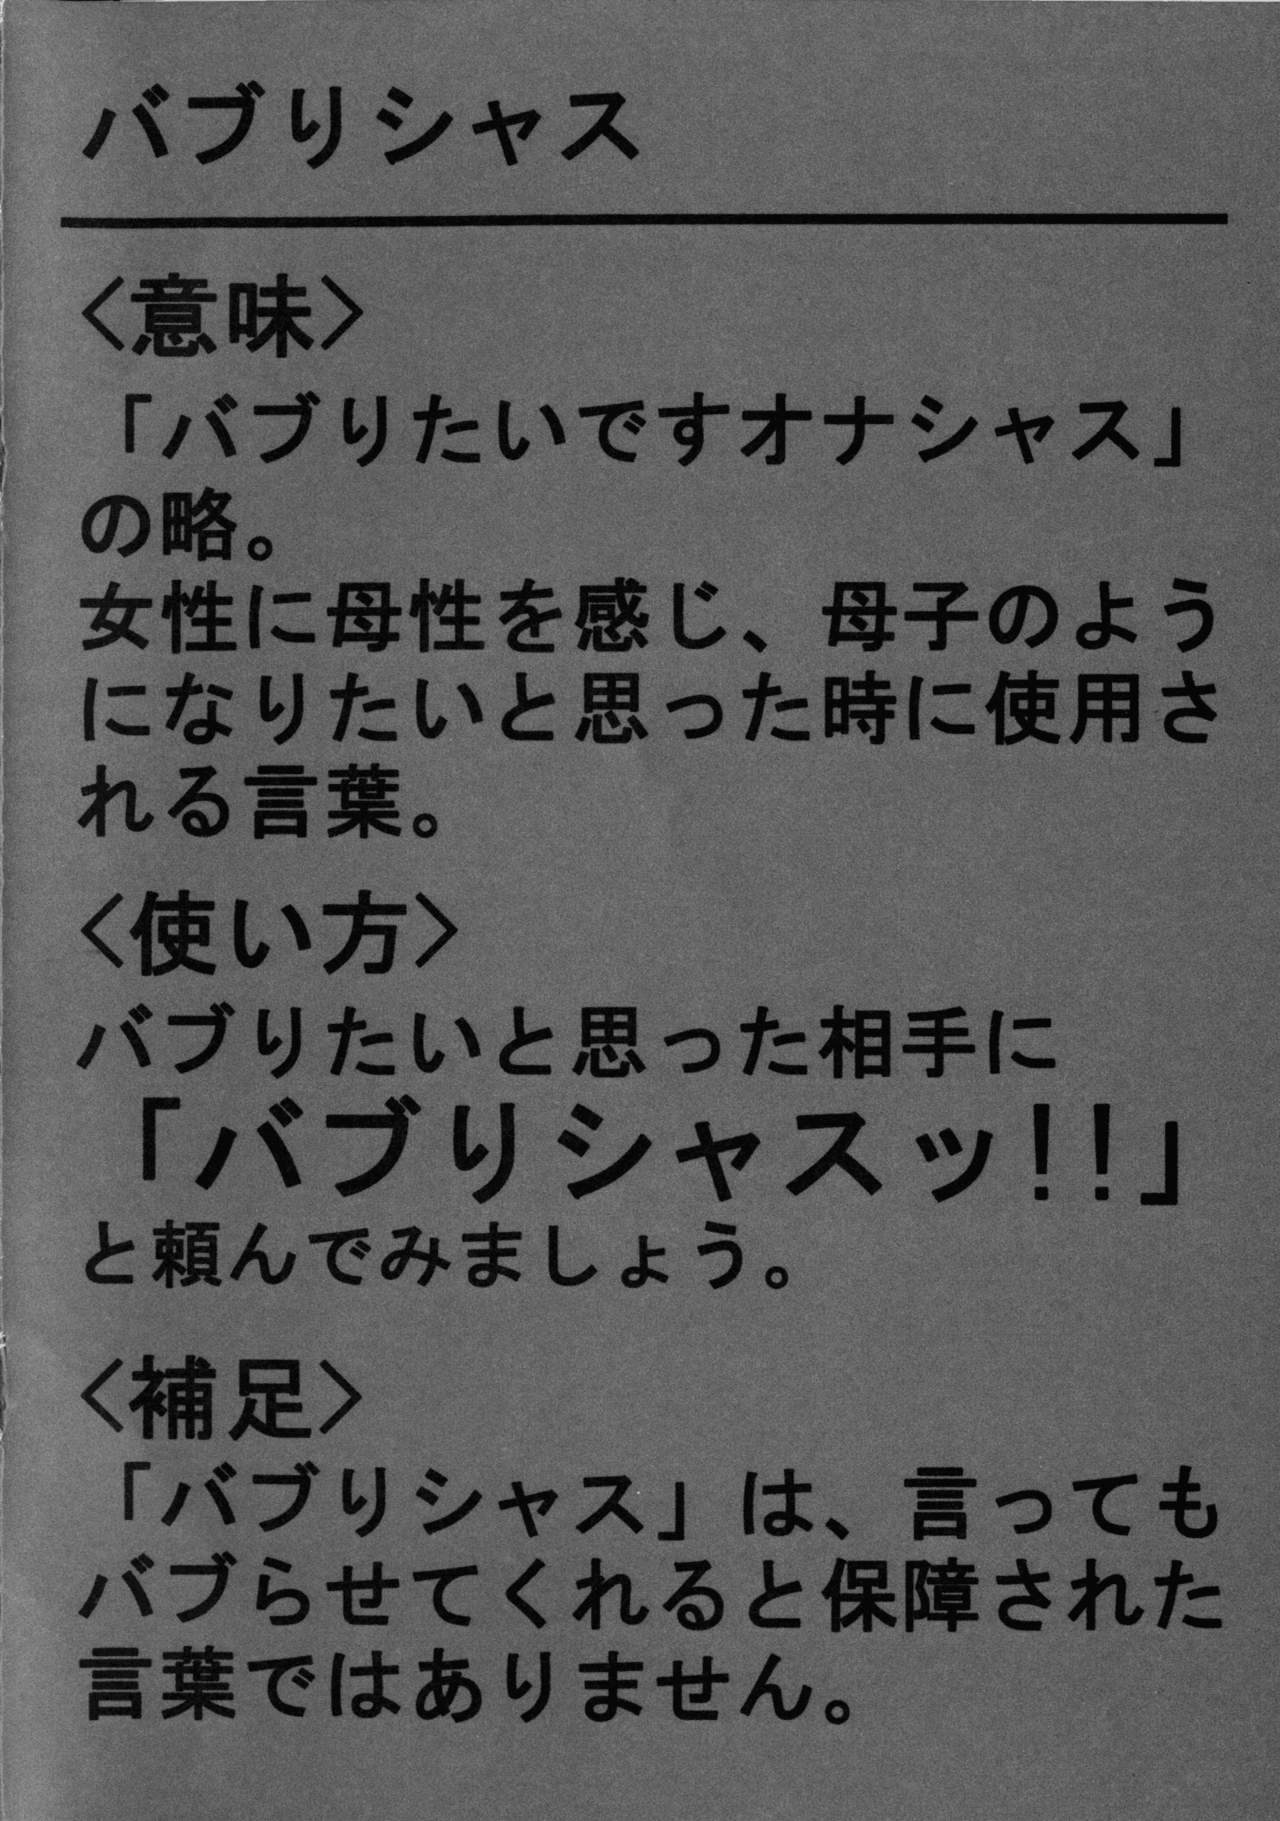 バブりシャス
〈意味〉
「バブりたいですオナシャス」
の略。
女性に母性を感じ、母子のよう
になりたいと思った時に使用さ
れる言葉。
〈使い方〉
バブりたいと思った相手に
「バブりシャスッ!!」
と頼んでみましょう。
〈補足〉
「バブりシャス」は、言っても
バブらせてくれると保障された
言葉ではありません。